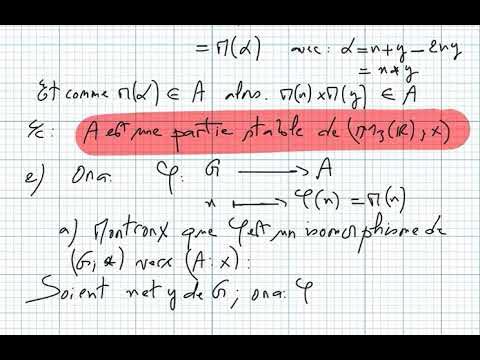 = M(α) avec: α = x + y - 2xy
= x * y
Et comme M(α) ∈ A alors. M(x) × M(y) ∈ A
A est une partie stable de (M3(ℝ), ×)
2) On a: φ: G ⟶ A
x ⟼ φ(x) = M(x)
a) Montrons que φ est un isomorphisme de
(G; *) vers (A; ×):
Soient x et y de G; on a: φ